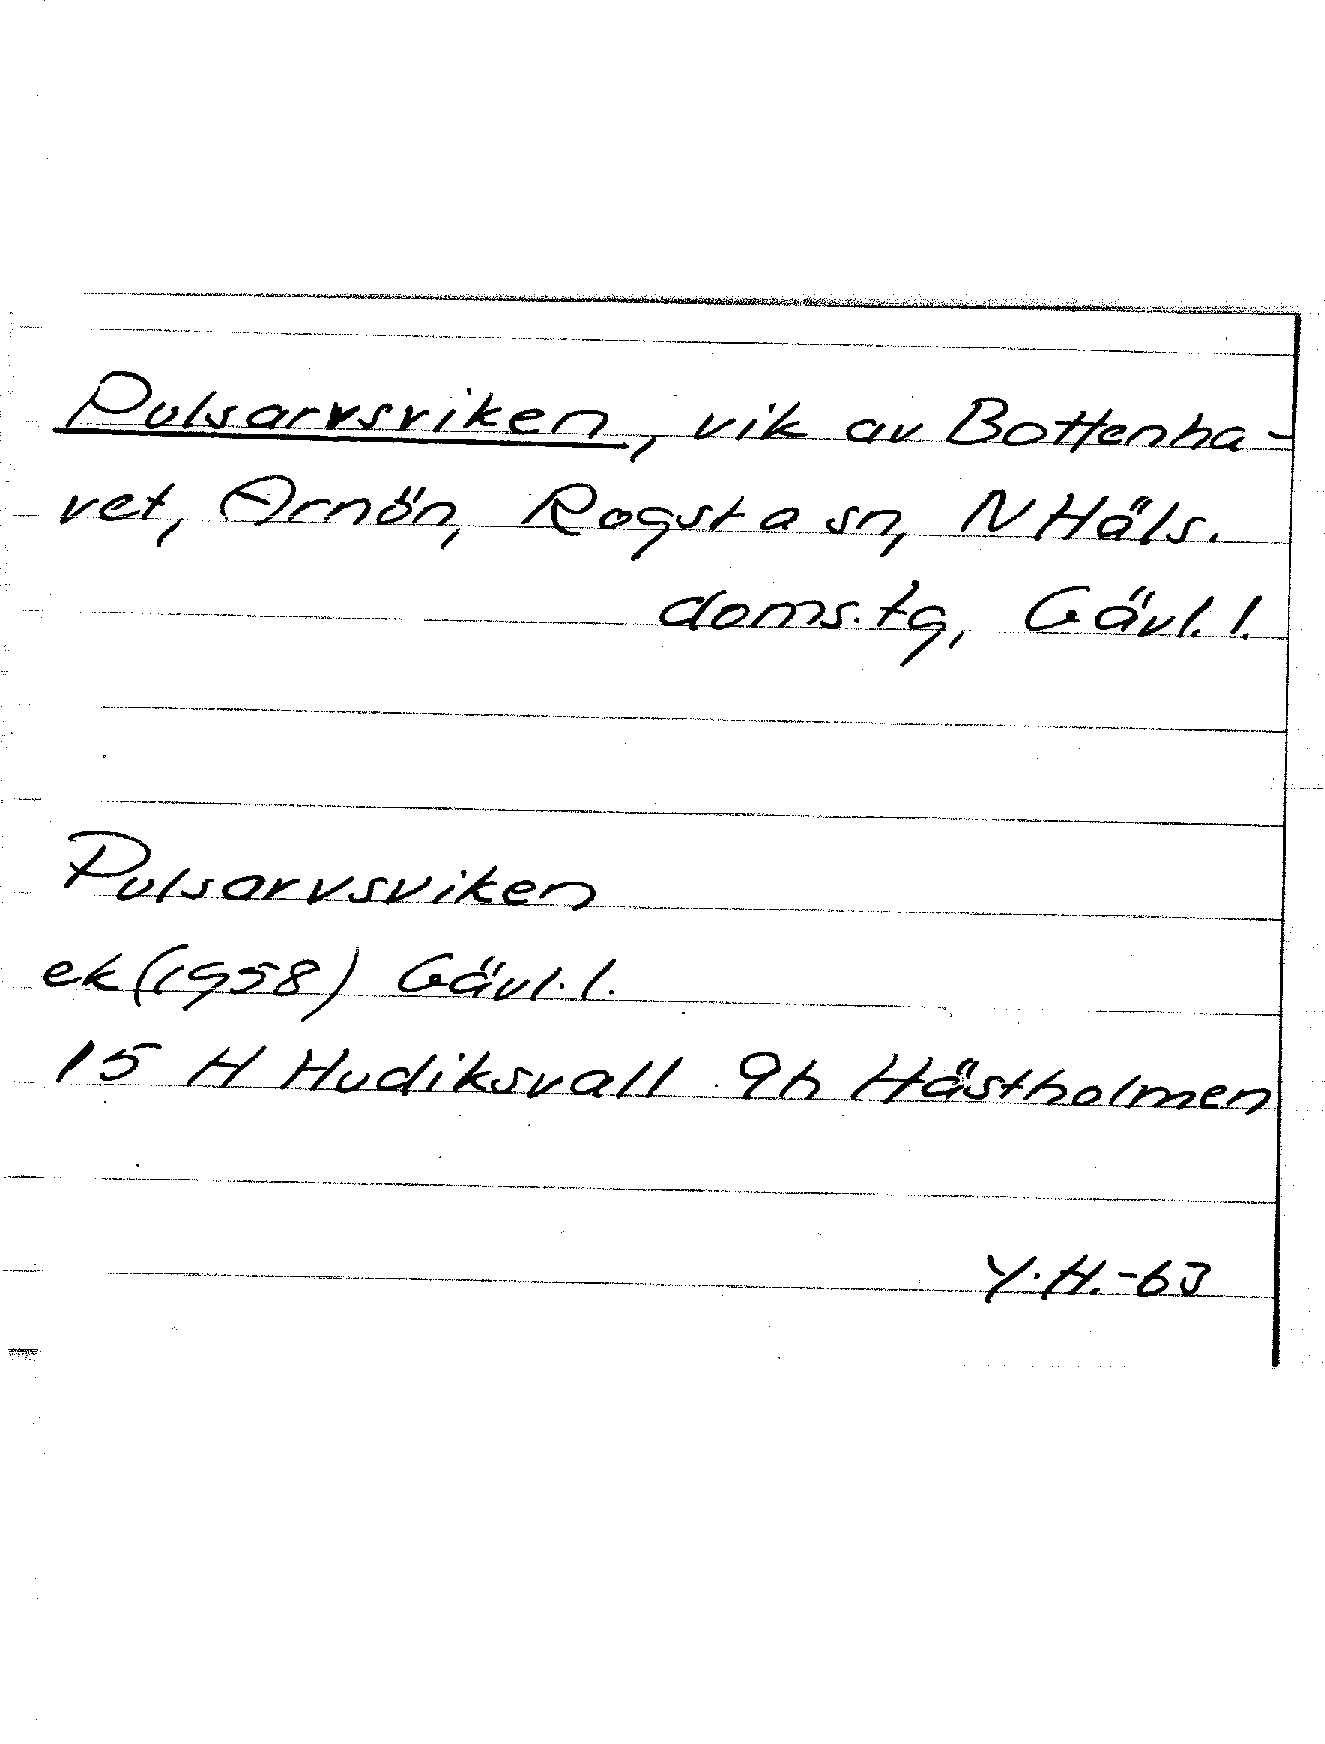 Pulsarvsviken, vik av Bottenha-
vet, Arnön, Rogsta sn, N Häls.
doms.tg, Gävl. l.
Pulsarvsviken
ek (1958) Gävl. l.
15 H Hudiksvall 9h Hästholmen
Y.H.-63